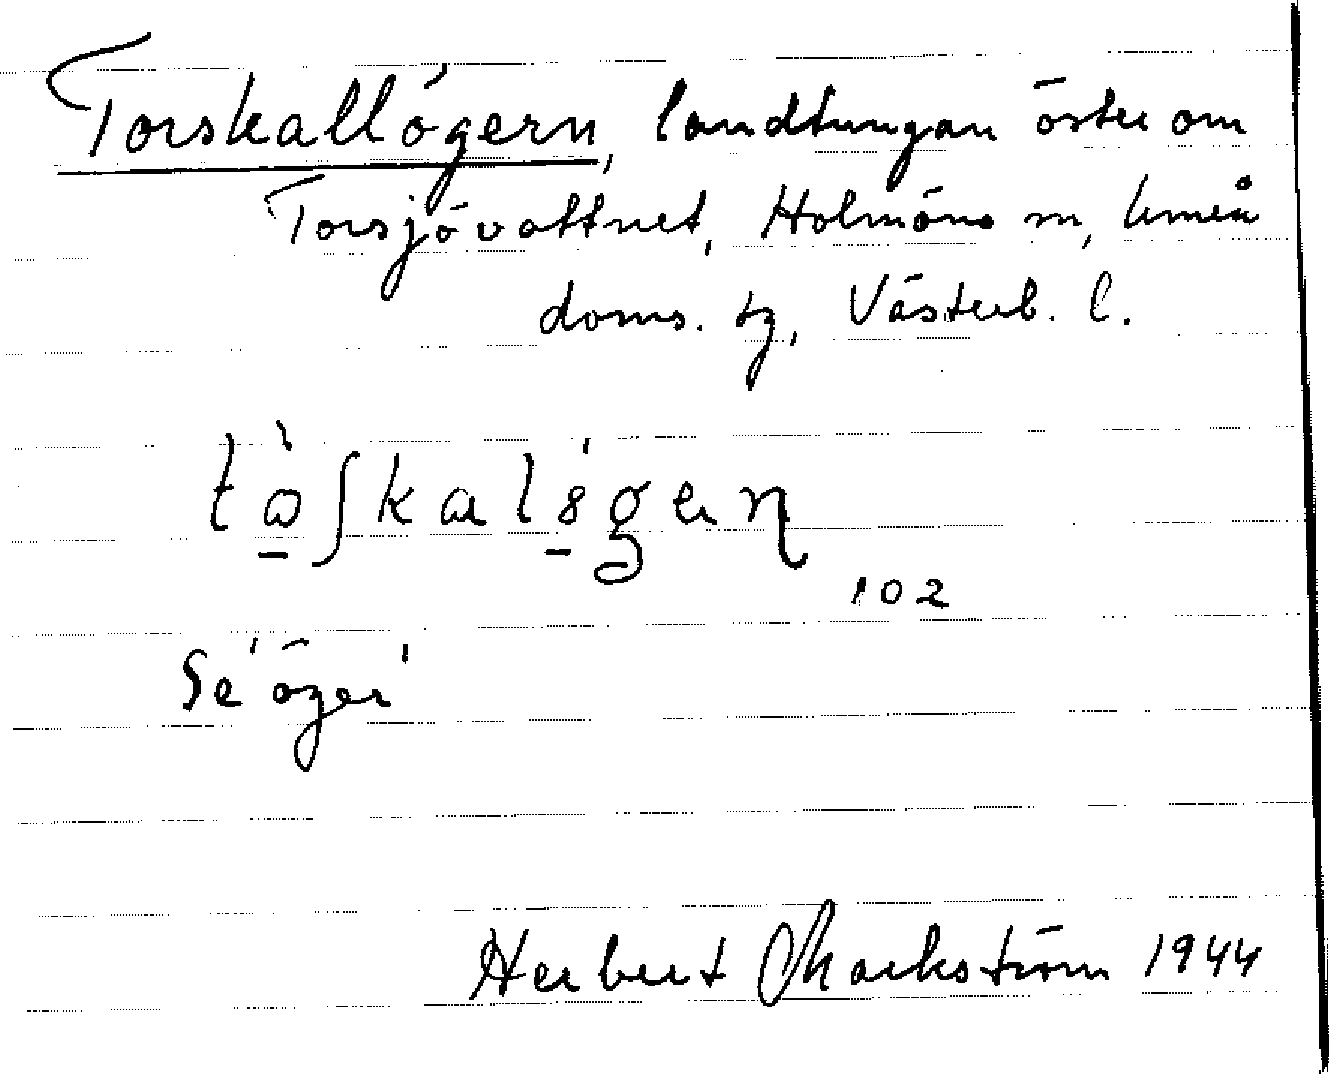 Torskallögern, landtungan öster om
Torsjövattnet, Holmöns sn, Umeå
doms. tg, Västerb. l.
102
Se 'öger'
Herbert Markström 1944